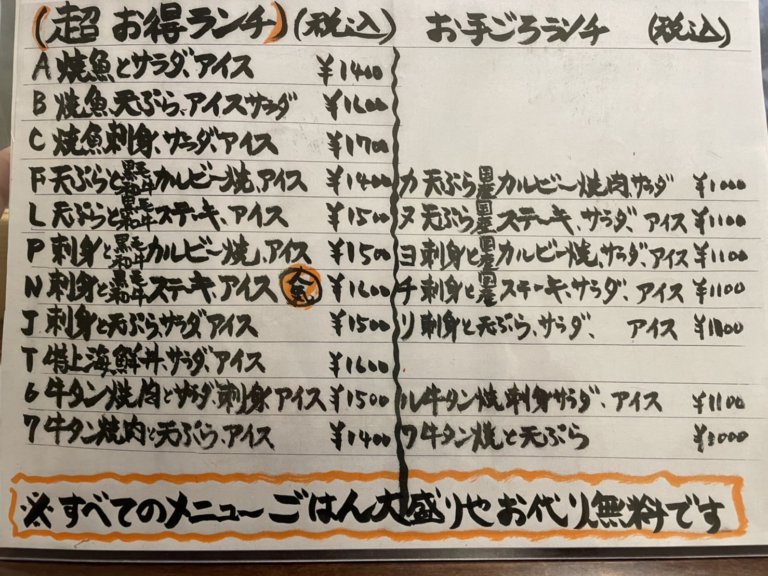 (超 お得ランチ)(税込)
A 焼魚とサラダ、アイス ¥1400
B 焼魚、天ぷら、アイスサラダ ¥1600
C 焼魚刺身、サラダ、アイス ¥1700
F 天ぷらと黒毛和牛カルビー焼、アイス ¥1400
L 天ぷらと黒毛和牛ステーキ、アイス ¥1500
P 刺身と黒毛和牛カルビー焼、アイス ¥1500
N 刺身と黒毛和牛ステーキ、アイス 人気 ¥1600
J 刺身と天ぷらサラダアイス ¥1500
T 特上海鮮丼、サラダ、アイス ¥1600
6 牛タン焼肉とサラダ、刺身アイス ¥1500
7 牛タン焼肉と天ぷら、アイス ¥1400
お手ごろランチ (税込)
カ 天ぷら国産カルビー焼肉、サラダ ¥1000
ヌ 天ぷら国産ステーキ、サラダ、アイス ¥1100
ヨ 刺身と国産カルビー焼、サラダ、アイス ¥1100
チ 刺身と国産ステーキ、サラダ、アイス ¥1100
リ 刺身と天ぷら、サラダ、アイス
ル 牛タン焼刺身サラダ、アイス ¥1100
ワ 牛タン焼と天ぷら
※すべてのメニューごはん大盛りやお代り無料です